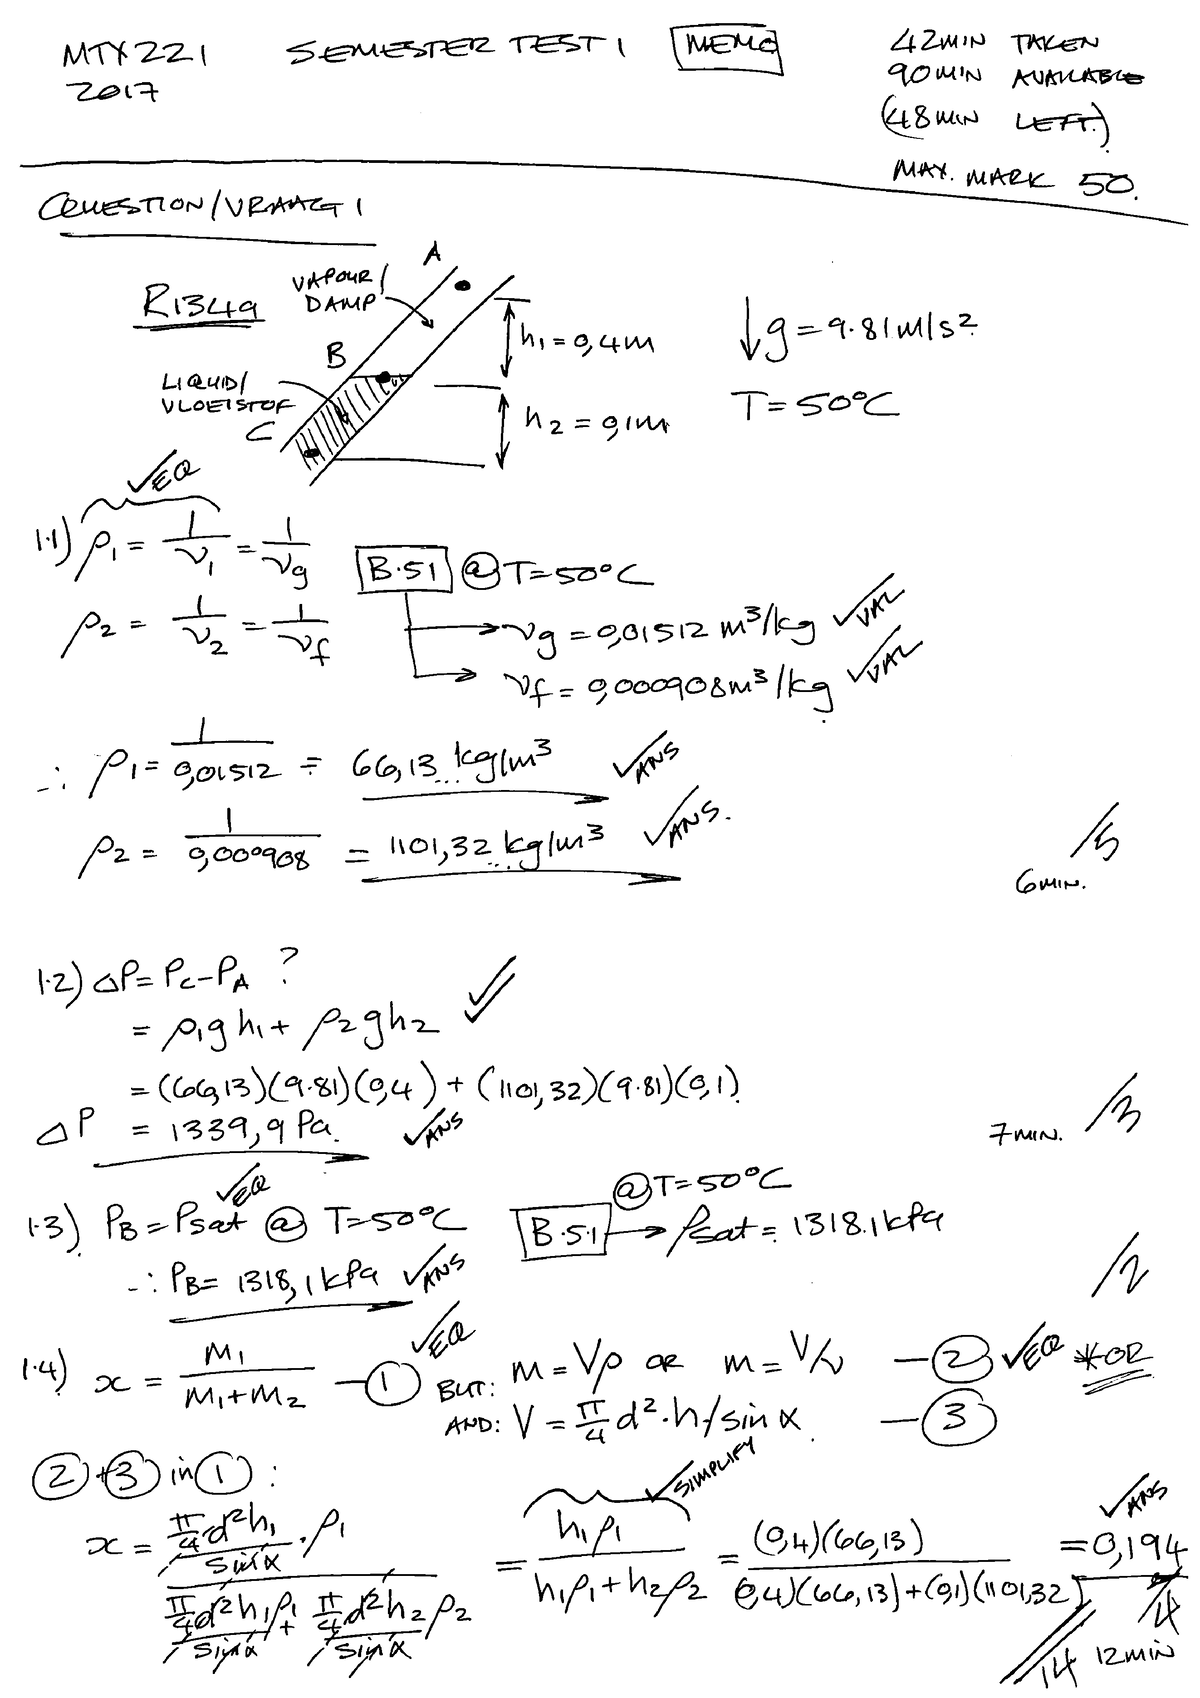 MTX221 SEMESTER TEST 1 MEMO
2017
42MIN TAKEN
90MIN AVAILABLE
(48MIN LEFT.)
MAX. MARK 50.
QUESTION/VRAAG 1
R134a
VAPOUR/
DAMP
A
B
LIQUID/
VLOEISTOF
C
h₁ = 0,4m
h₂ = 0,1m
↓g = 9.81m/s²
T = 50°C
✓EQ
1.1) ρ₁ = 1/ν₁ = 1/νg
B.51 @ T=50°C
ρ₂ = 1/ν₂ = 1/νf
→ νg = 0,01512 m³/kg ✓VAL
→ νf = 0,000908m³/kg ✓VAL
∴ ρ₁ = 1/0,01512 = 66,13... kg/m³ ✓ANS
ρ₂ = 1/0,000908 = 1101,32... kg/m³ ✓ANS.
/5
6MIN.
1.2) ΔP = Pc-PA ?
= ρ₁gh₁ + ρ₂gh₂ ✓✓
= (66,13)(9.81)(0,4) + (1101,32)(9.81)(0,1)
ΔP = 1339,9 Pa. ✓ANS
7MIN. /3
✓EQ
1.3) PB = Psat @ T=50°C
@T=50°C
B.5.1 → Psat = 1318.1kPa
∴ PB = 1318,1kPa ✓ANS
/2
1.4) x = m₁/(m₁+m₂) —① ✓EQ
BUT: m = Vρ OR m = V/ν —② ✓EQ *OR
AND: V = π/4 d²·h/sin α —③
②+③ in ① :
x = (π/4 d²h₁/sin α · ρ₁)/(π/4 d²h₁ρ₁/sin α + π/4 d²h₂ρ₂/sin α) = h₁ρ₁/(h₁ρ₁+h₂ρ₂) = (0,4)(66,13)/((0,4)(66,13)+(0,1)(1101,32)) = 0,194
✓SIMPLIFY
✓ANS
/4
/14 12MIN